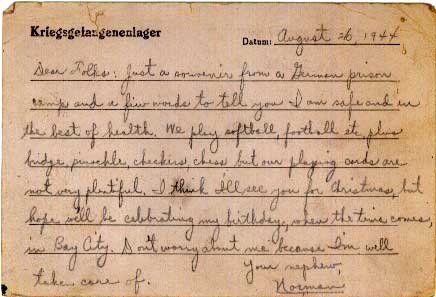 Kriegsgefangenenlager
Datum: August 26, 1944
Dear Folks: Just a souvenir from a German prison
camp and a few words to tell you I am safe and in
the best of health. We play softball, football etc, plus
bridge, pinochle, checkers, chess but our playing cards are
not very plentiful. I think I'll see you for Christmas, but
hope we'll be celebrating my birthday, when the time comes,
in Bay City. Don't worry about me because I'm well
taken care of. Your nephew,
Norman